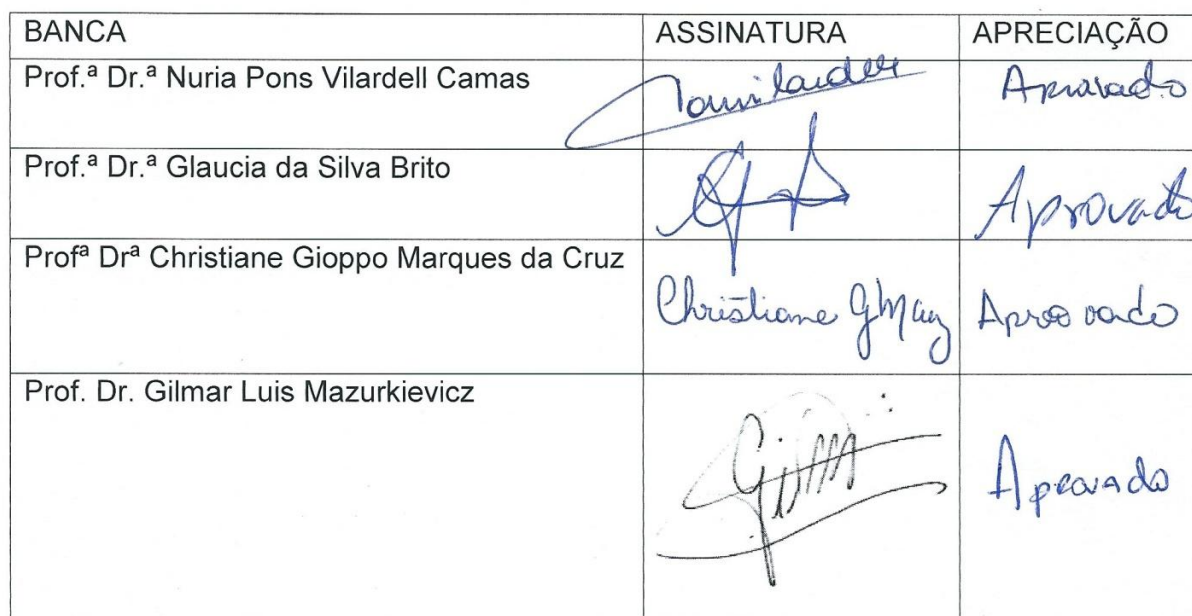 BANCA ASSINATURA APRECIAÇÃO
Prof.ª Dr.ª Nuria Pons Vilardell Camas Aprovado
Prof.ª Dr.ª Glaucia da Silva Brito Aprovado
Profª Drª Christiane Gioppo Marques da Cruz Christiane Aprovado
Prof. Dr. Gilmar Luis Mazurkievicz Aprovado